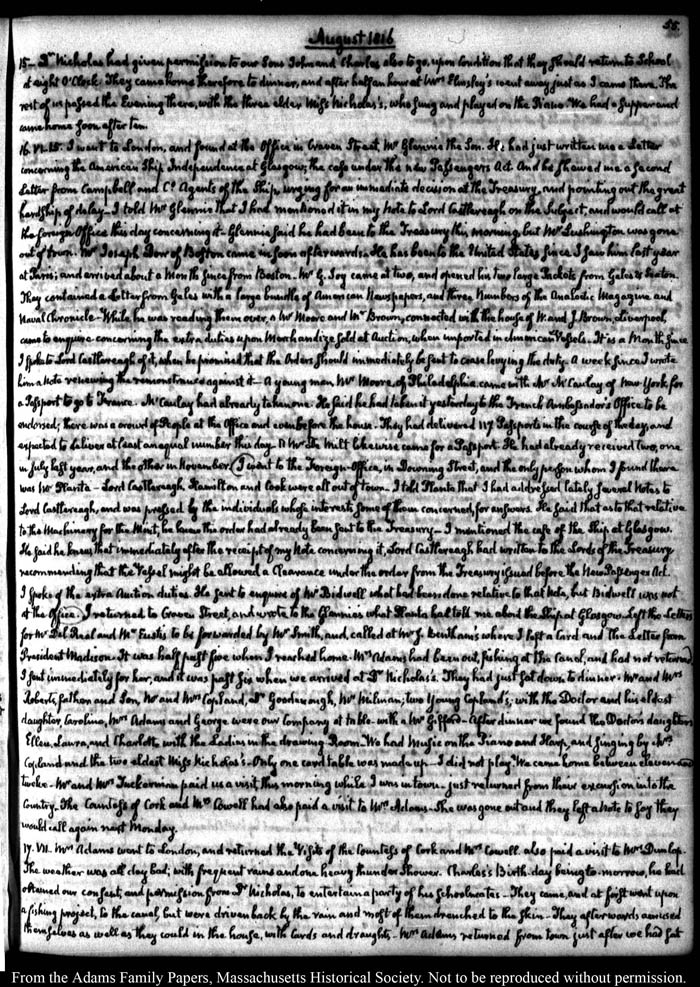 55.
August 1816
15— Dr. Nicholas had given permission to our Sons John and Charles also to go, upon condition that they should return to School
at eight O'Clock. They came home therefore to dinner, and after half an hour at Mrs went away just as I came there. The
rest of us passed the Evening there, with the three elder Miss Nicholas's, who sung and played on the Piano. We had a Supper and
came home soon after ten.
16. VI. I went to London, and found at the Office in Craven Street, Mr Glennie the Son. He had just written me a Letter
concerning the American Ship Independence at Glasgow; the case under the new Passengers Act. And he shewed me a second
Letter from Campbell and Co. Agents of the Ship, urging for an immediate decision at the Treasury, and pointing out the great
hardship of delay— I told Mr Glennie that I had mentioned it in my Note to Lord Castlereagh on the Subject, and would call at
the foreign Office this day concerning it— Glennie said he had been to the Treasury this morning, but Mr Lushington was gone
out of town. Mr Joseph Dorr of Boston came in soon afterwards. He has been to the United States since I saw him last year
at Paris; and arrived about a Month since from Boston— Mr G. Joy came at two, and opened his two large Packets from Gales & Seaton.
They contained a Letter from Gales with a large bundle of American Newspapers, and three Numbers of the Analectic Magazine and
Naval Chronicle— While he was reading them over, a Mr Moore and Mr Brown, connected with the house of W. and J. Brown, Liverpool,
came to enquire concerning the extra duties upon Merchandize sold at Auction, when imported in American Vessels. It is a Month since
I spoke to Lord Castlereagh of it, when he promised that the Orders should immediately be sent to cease levying the duty. A week since I wrote
him a Note renewing the remonstrance against it— A young man, Mr Moore, of Philadelphia came with Mr McCaulay of New York for
a Passport to go to France. McCaulay had already taken one. He said he had taken it yesterday to the French Ambassador's Office to be
endorsed; there was a crowd of People at the Office and even before the house. They had delivered 117 Passports in the course of the day, and
expected to deliver at least an equal number this day. A Mr De Milt likewise came for a Passport. He had already received two, one
in July last year, and the other in November. I went to the Foreign-Office, in Downing Street, and the only person whom I found there
was Mr Planta— Lord Castlereagh, Hamilton and Cook were all out of town. I told Planta that I had addressed lately several Notes to
Lord Castlereagh, and was pressed by the individuals whose interests some of them concerned, for answers. He said that as to that relative
to the Machinery for the Mint, he knew the order had already been sent to the Treasury— I mentioned the case of the Ship at Glasgow.
He said he knew that immediately after the receipt of my Note concerning it, Lord Castlereagh had written to the Lords of the Treasury
recommending that the Vessel might be allowed a Clearance under the order from the Treasury issued before the New Passenger Act.
I spoke of the extra Auction duties. He sent to enquire of Mr Bidwell what had been done relative to that Note, but Bidwell was not
at the Office. I returned to Craven Street, and wrote to the Glennies what Planta had told me about the Ship at Glasgow. Left the Letters
for Mr Del Real and Mr Eustis to be forwarded by Mr Smith, and, called at Mr J. Bentham's where I left a Card and the Letter from
President Madison. It was half past five when I reached home. Mrs Adams had been out, fishing at the Canal, and had not returned
I sent immediately for her, and it was past six when we arrived at Dr Nicholas's. They had just sat down to dinner. Mr and Mrs
Roberts, father and Son, Mr and Mrs Copland, Dr Goodenough, Mr Milman; two Young Copland's; with the Doctor and his eldest
daughter Caroline, Mrs Adams and George were our Company at table— with a Mr Gifford— After dinner we found the Doctors daughters
Ellen, Laura, and Charlotte with the Ladies in the drawing Room. We had Music on the Piano and Harp, and singing by Mrs
Copland and the two eldest Miss Nicholas's. Only one card table was made up— I did not play. We came home between eleven and
twelve— Mr and Mrs Tuckerman paid us a visit this morning while I was in town— just returned from their excursion into the
Country. The Countess of Cork and Mrs Cowell had also paid a visit to Mrs Adams— She was gone out and they left a Note to say they
would call again next Monday.
17. VII. Mrs Adams went to London, and returned the Visits of the Countess of Cork and Mrs Cowell. also paid a visit to Mrs Dunlop.
The weather was all day bad, with frequent rains and one heavy thunder shower. Charles's Birth-day being to-morrow, he had
obtained our consent, and permission from Dr Nicholas, to entertain a party of his Schoolmates— They came, and at first went upon
a fishing project, to the canal, but were driven back by the rain and most of them drenched to the skin— They afterwards amused
themselves as well as they could in the house, with cards and draughts— Mrs Adams returned from town just after we had sat
From the Adams Family Papers, Massachusetts Historical Society. Not to be reproduced without permission.